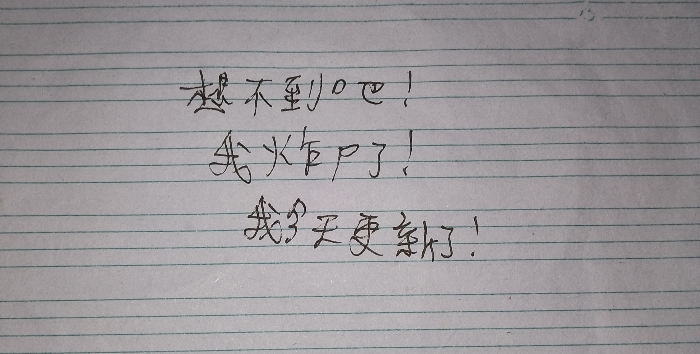 想不到吧!
我炸尸了!
我今天更新了!